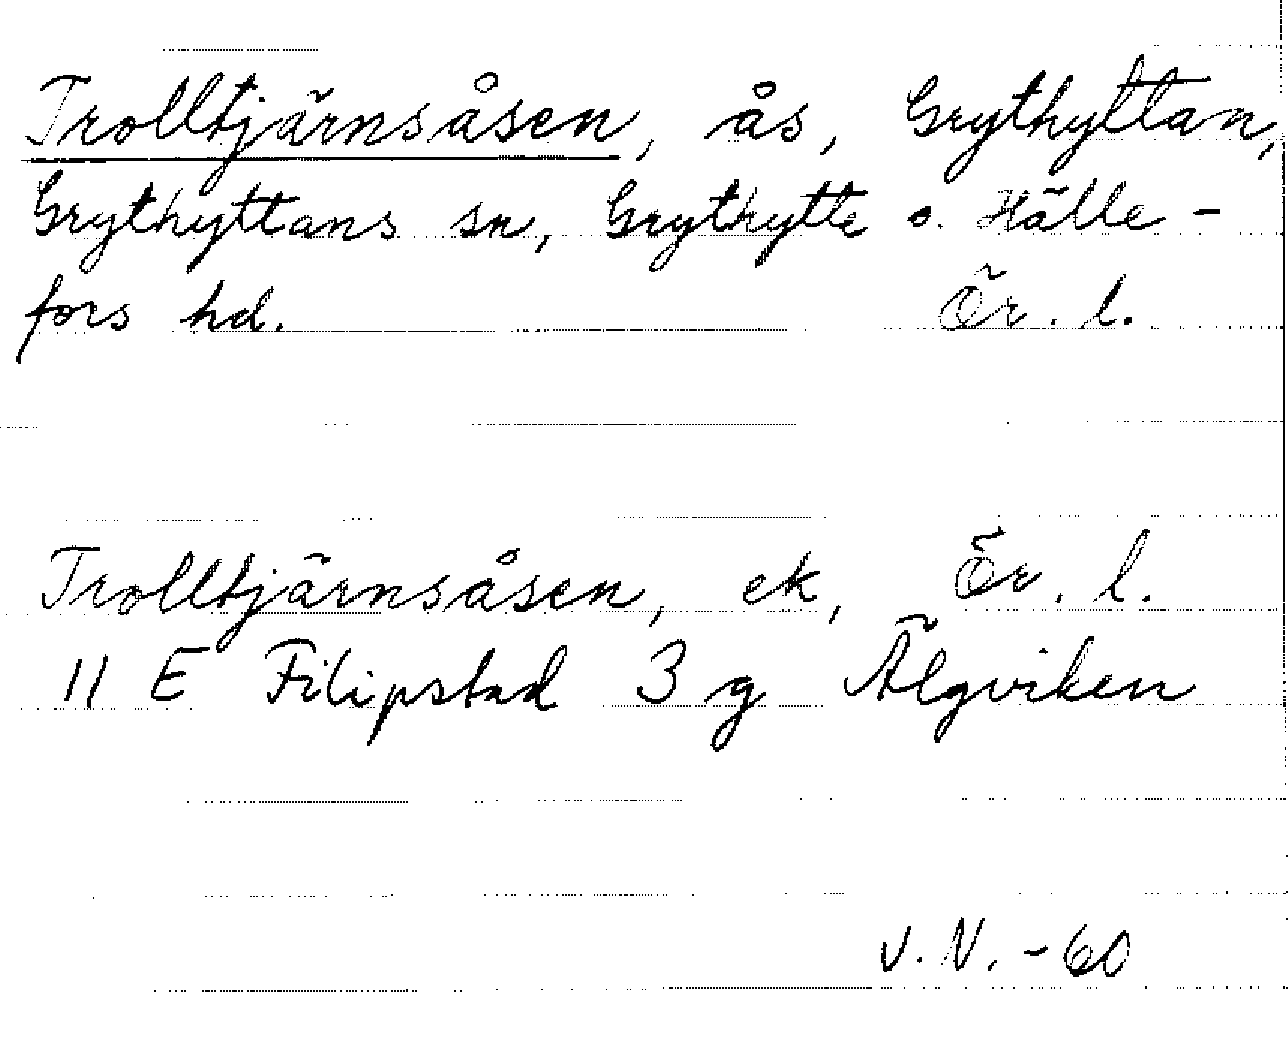 Trolltjärnsåsen, ås, Grythyttan,
Grythyttans sn, Grythytte o. Hälle-
fors hd. Ör. l.
Trolltjärnsåsen, ek, Ör. l.
11 E Filipstad 3 g Älgviken
V.N. -60